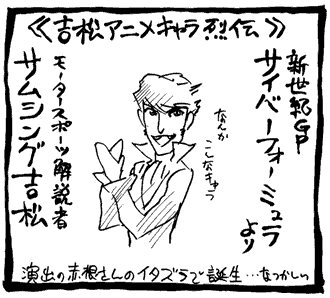 ≪吉松アニメキャラ烈伝≫
新世紀GP
サイバーフォーミュラ
より
なんか
こんなキャラ
モータースポーツ解説者
サムシング吉松
演出の赤根さんのイタズラで誕生…なつかしい